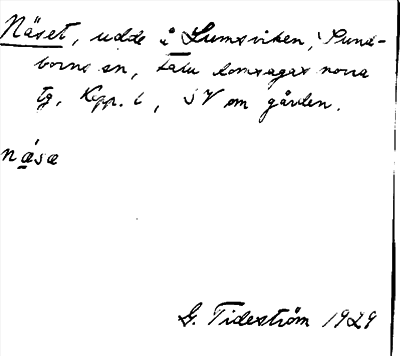 Näset, udde i Lumsviken, Sund-
borns sn, Falu domsagas norra
tg, Kpp. 6, SV om gården.
näsæ
G. Tideström 1929